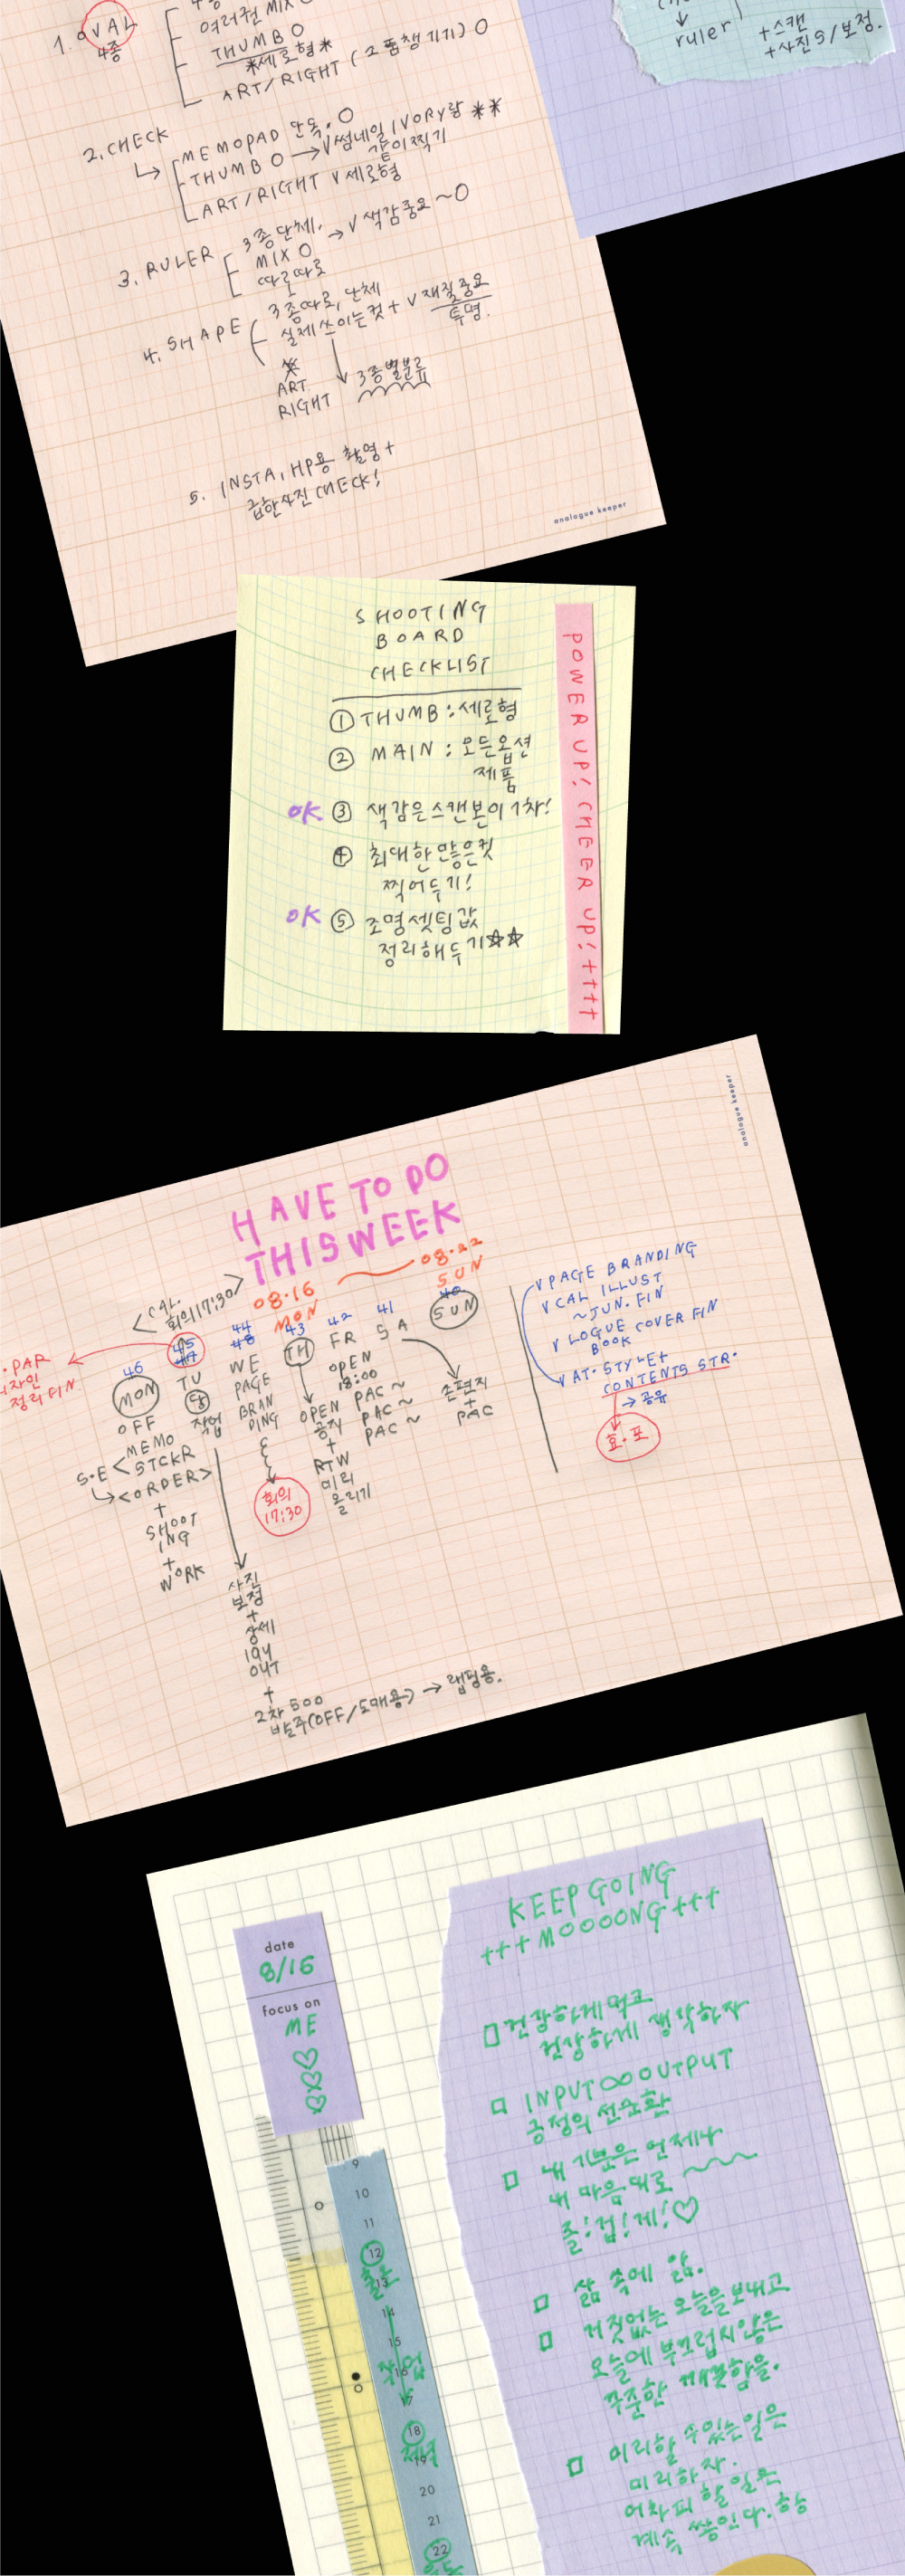 1. OVAL
4종
여러권 MIX O
THUMB O
*세로형*
ART/RIGHT (소품챙기기) O
2. CHECK
MEMOPAD 단독. O
THUMB O → V 썸네일 IVORY랑 **
같이 찍기
ART/RIGHT V 세로형
3. RULER
3종 단체,
MIX O → V 색감중요 ~O
따로따로
4. SHAPE
3종 따로, 단체
실제 쓰이는 컷 + V 재질중요
투명.
ART
RIGHT
3종별분류
5. INSTA, HP용 촬영 +
급한사진 CHECK!
analogue keeper
ruler
+스캔
+사진 S/보정.
SHOOTING
BOARD
CHECKLIST
① THUMB : 세로형
② MAIN : 모든옵션
제품
OK. ③ 색감은 스캔본이 1차!
④ 최대한 많은컷
찍어두기!
OK ⑤ 조명셋팅값
정리해두기☆☆
POWER UP! CHEER UP! ++++
analogue keeper
HAVE TO DO
THIS WEEK
08.16 08.22
MON SUN
<CAL.
회의 17:30>
PAR
자인
정리 FIN
46
MON
OFF
S.E < MEMO
STCKR
<ORDER>
+
SHOOT
ING
+
WORK
45
TU
작업
사진
보정
+
상세
lay
OUT
+
2차 500
발주(OFF/도매용) → 랩핑용.
44
WE
PAGE
BRAN
DING
회의
17:30
43
TH
OPEN
공지
+
RTW
미리
올리기
42
FR
OPEN
18:00
PAC~
PAC~
PAC~
41
SA
손편지
+
PAC
40
SUN
V PAGE BRANDING
V CAL ILLUST
~JUN. FIN
V LOGUE COVER FIN
BOOK
V AT. STYLE+
CONTENTS STR.
→ 공유
효.포
date
8/16
focus on
ME
♡♡♡
9
10
11
12
13
14
15
작업
16
17
18
저녁
19
20
21
22
KEEP GOING
+++MOOOONG+++
□ 건강하게 먹고
건강하게 생각하자
□ INPUT∞OUTPUT
긍정의 선순환
□ 내 기분은 언제나
내 마음대로 ~~~
즐!겁!게!♡
□ 삶 속에 앎.
□ 거짓없는 오늘을 보내고
오늘에 부끄럽지않은
꾸준한 깨끗함을.
□ 미리할 수있는 일은
미리하자.
어차피 할 일은
계속 쌓인다. 항